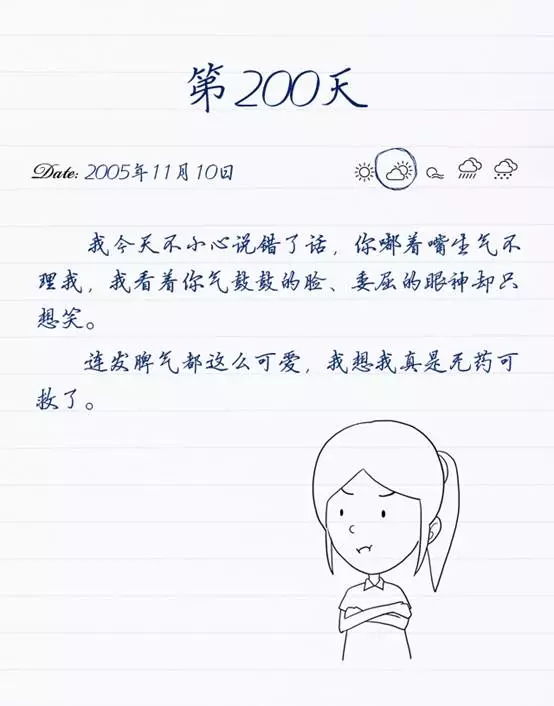 第200天
Date: 2005年11月10日
我今天不小心说错了话，你嘟着嘴生气不
理我，我看着你气鼓鼓的脸、委屈的眼神却只
想笑。
连发脾气都这么可爱，我想我真是无药可
救了。